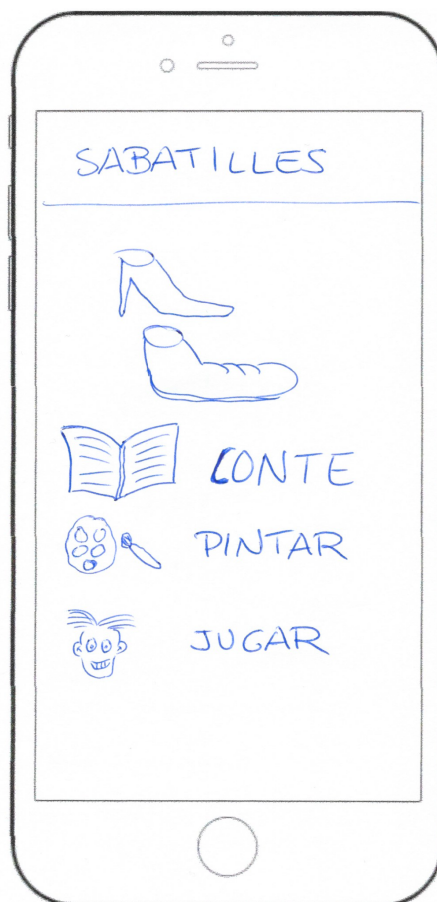 SABATILLES
CONTE
PINTAR
JUGAR